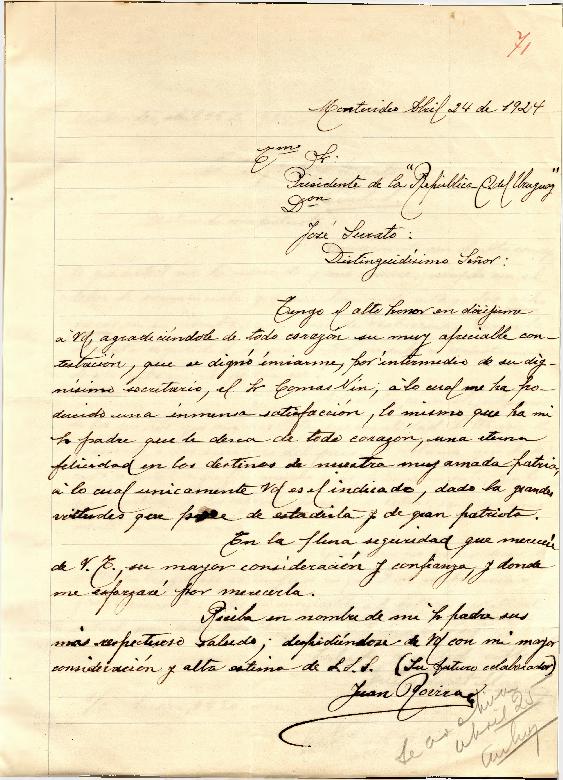 71
Montevideo Abril 24 de 1924
Exmo Sr:
Presidente de la "República O. del Uruguay"
Don
José Serrato:
Distinguidísimo Señor:
Tengo el alto honor en dirijirme
á Vd, agradeciéndole de todo corazón su muy apreciable con-
testación, que se dignó enviarme, por intermedio de su dig-
nísimo secretario, el Sr Comas Nin; á lo cual me ha pro-
ducido una inmensa satisfacción, lo mismo que ha mi
Sr padre que le desea de todo corazón, una eterna
felicidad en los destinos de nuestra muy amada patria,
á lo cual unicamente Vd es el indicado, dado la grandes
virtudes que posee de estadista y de gran patriota.
En la plena seguridad que mereceré
de V. E., su mayor consideración y confianza, y donde
me esforzaré por merecerla.
Reciba en nombre de mi Sr padre sus
más respetuoso saludo; despidiéndose de Vd con mi mayor
consideración y alta estima de S.S.S. (Su futuro colaborador)
Juan
Se archiva
abril 25